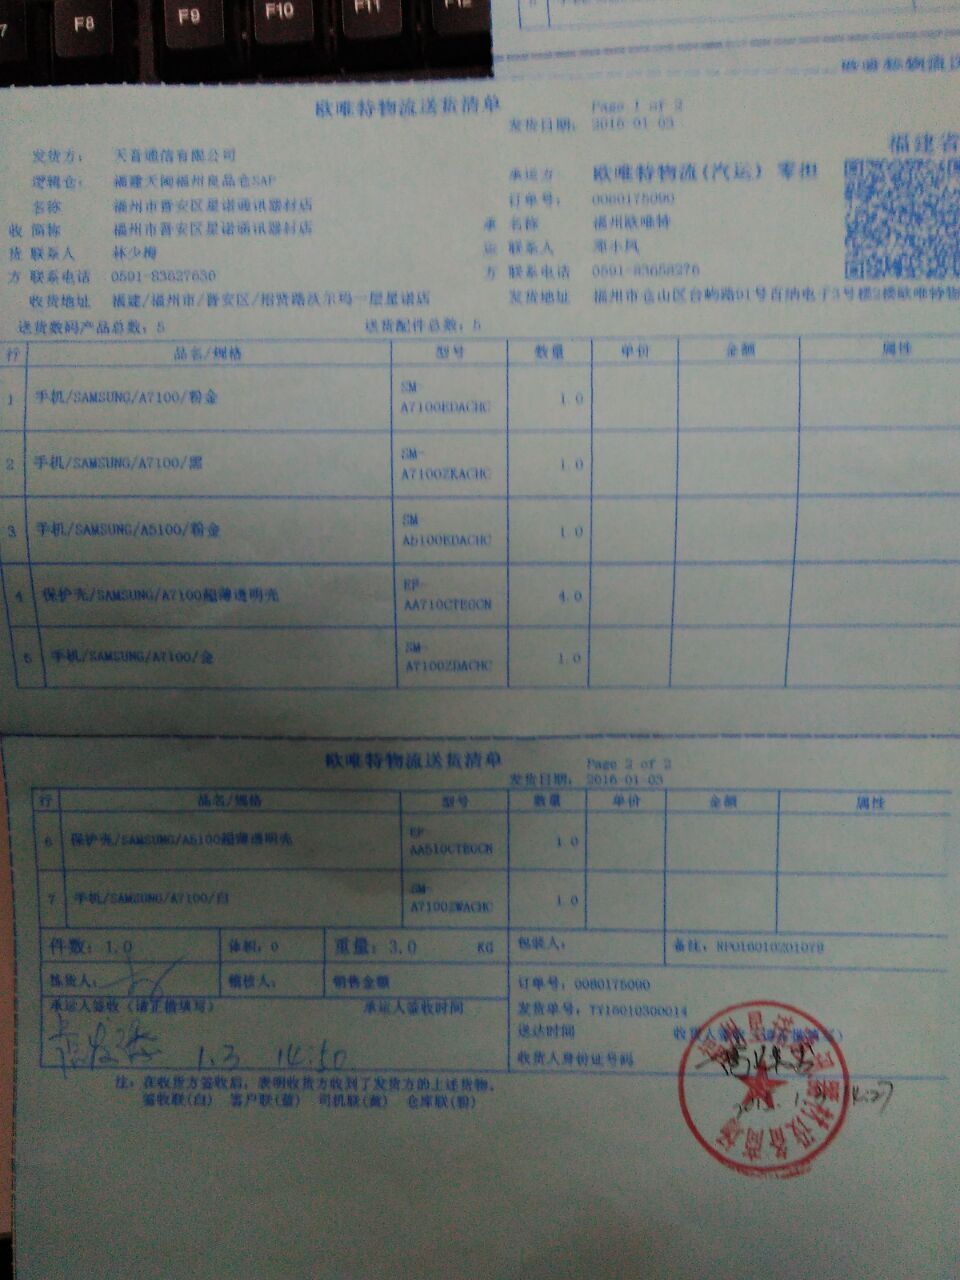 F8 F9 F10 F11 F12
欧唯特物流送货清单
Page 1 of 2
发货日期: 2016-01-03
福建省
发货方: 天音通信有限公司
承运方 欧唯特物流(汽运) 零担
逻辑仓: 福建天闽福州良品仓SAP
订单号: 0080175090
名称 福州市晋安区星诺通讯器材店
承 名称 福州欧唯特
收 简称 福州市晋安区星诺通讯器材店
运 联系人 邓小凤
货 联系人 林少梅
方 联系电话 0591-83658276
方 联系电话 0591-83627630
发货地址 福州市仓山区台屿路91号百纳电子3号楼2楼欧唯特物
收货地址 福建/福州市/晋安区/招贤路沃尔玛一层星诺店
送货数码产品总数: 5 送货配件总数: 5
行 品名/规格 型号 数量 单价 金额 属性
1 手机/SAMSUNG/A7100/粉金 SM-A7100EDACHC 1.0
2 手机/SAMSUNG/A7100/黑 SM-A7100ZKACHC 1.0
3 手机/SAMSUNG/A5100/粉金 SM-A5100EDACHC 1.0
4 保护壳/SAMSUNG/A7100超薄透明壳 EF-AA710CTEGCN 4.0
5 手机/SAMSUNG/A7100/金 SM-A7100ZDACHC 1.0
欧唯特物流送货清单
Page 2 of 2
发货日期: 2016-01-03
行 品名/规格 型号 数量 单价 金额 属性
6 保护壳/SAMSUNG/A5100超薄透明壳 EF-AA510CTEGCN 1.0
7 手机/SAMSUNG/A7100/白 SM-A7100ZWACHC 1.0
件数: 1.0 体积: 0 重量: 3.0 KG 包装人: 备注: RPO16010201079
拣货人: 稽核人: 销售金额 订单号: 0080175090
承运人签收 (请正楷填写) 承运人签收时间
发货单号: TY16010300014
送达时间
1.3 14:50
收货人身份证号码
注: 在收货方签收后, 表明收货方收到了发货方的上述货物.
签收联(白) 客户联(蓝) 司机联(黄) 仓库联(粉)